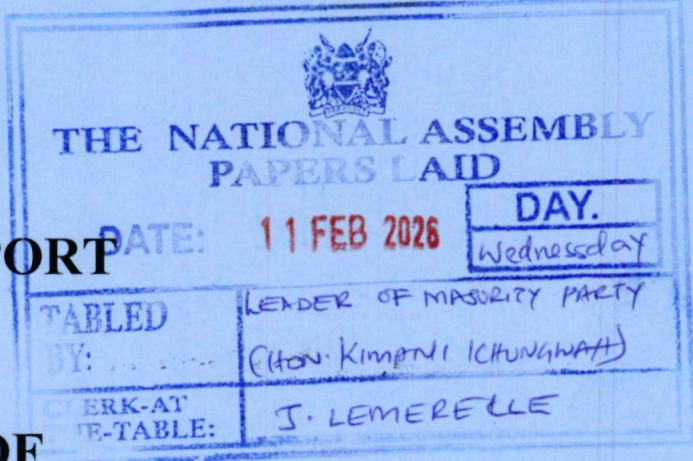 THE NATIONAL ASSEMBLY
PAPERS LAID
DATE: 11 FEB 2026
DAY.
Wednesday
PORT
TABLED BY:
LEADER OF MAJORITY PARTY
(HON. KIMANI ICHUNGWAH)
CLERK-AT
E-TABLE:
J. LEMERELLE
OF